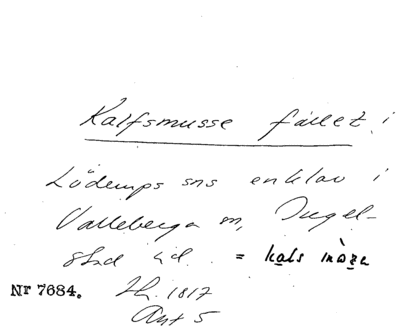 Kalfsmusse fallet i
Löderups sns enklav i
Valleberga sn, Ingel-
stad hd. = kals
Nr 7684. 1817
Akt 5